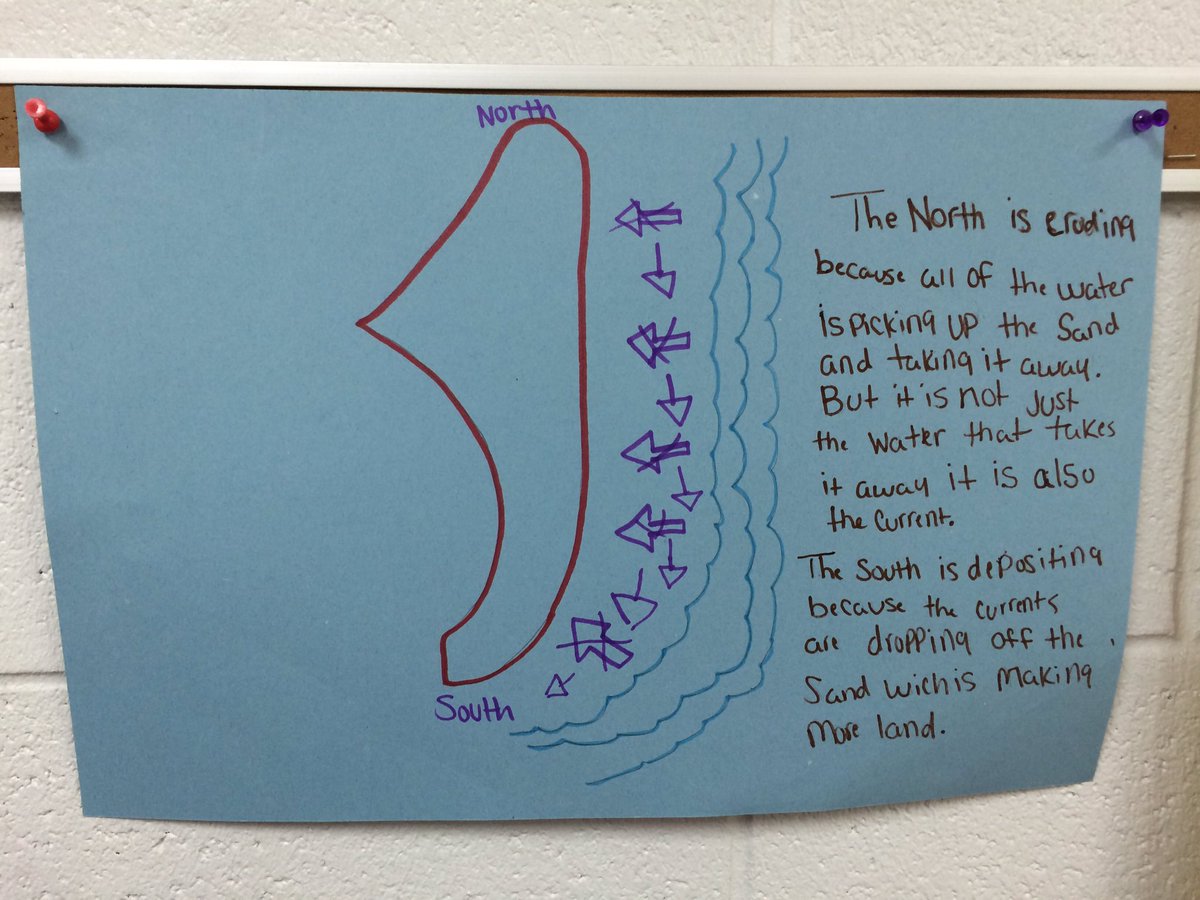 North
The North is eroding
because all of the water
is picking up the sand
and taking it away.
But it is not just
the water that takes
it away it is also
the current.
The South is depositing
because the currents
are dropping off the
Sand wich is making
more land.
South